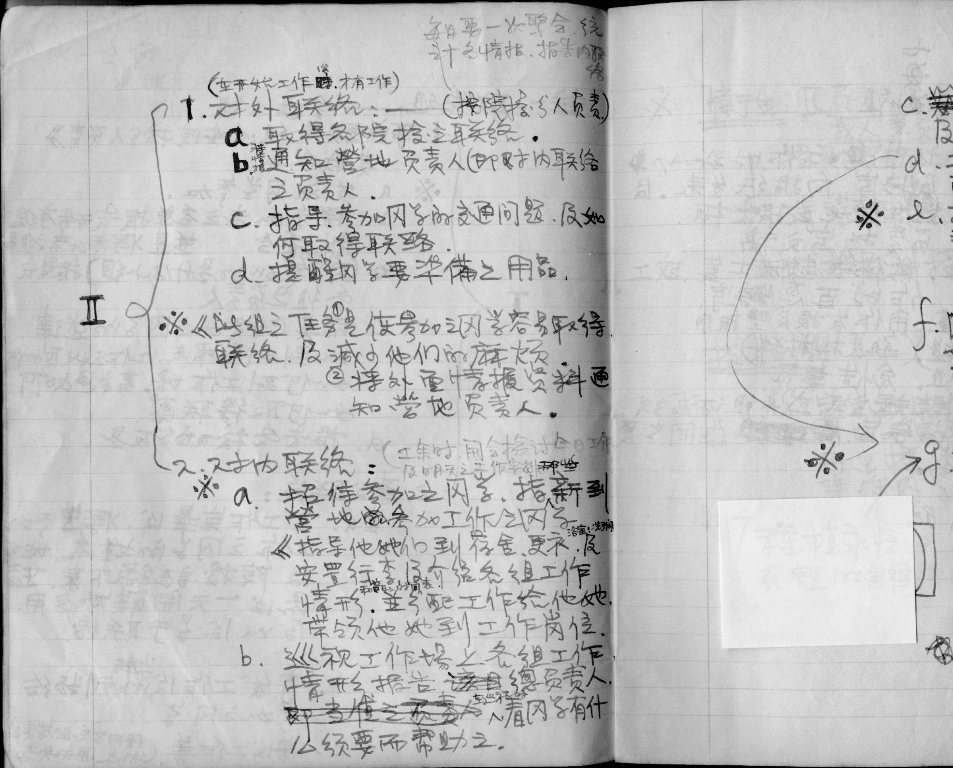 每日第一次联合.统
计各情报.报告内联络
(在开始工作 才有工作)
1. 对外联络:— (按院接分人负责)
a. 取得各院接之联络.
b. 通知营地负责人(即对内联络
之负责人.
c. 指导.参加冈学的交通问题.及如
何取得联络.
d. 提醒冈学要準備之用品.
II
※《此组之任务①是使参加之冈学容易取得
联络.及减少他们的麻烦.
②将外面情报资料通
知营地负责人.
2. 对内联络:
(工余时.开会检讨今日工作
及明天之工作安排
※
a. 招待参加之冈学.指新到
营地参加工作之冈学
《指导他她们到宿舍.更衣.及
安置行李.介绍各组工作
情形.並分配工作给他她.
带领他她到工作岗位.
b. 巡视工作场上各组工作
情形.报告总负责人.
看冈学有什
么须要而帮助之.
c.
及
d.
※
e.
f.
※
g.